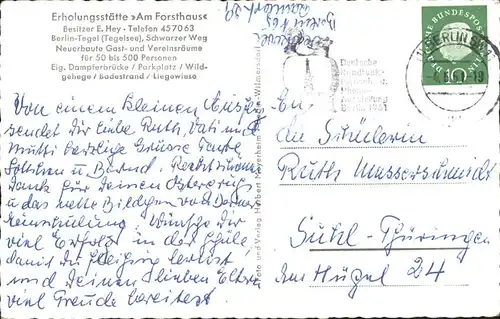 Erholungsstätte »Am Forsthaus«
Besitzer E. Hey · Telefon 457063
Berlin-Tegel (Tegelsee), Schwarzer Weg
Neuerbaute Gast- und Vereinsräume
für 50 bis 500 Personen
Eig. Dampferbrücke / Parkplatz / Wild-
gehege / Badestrand / Liegewiese
Von einem kleinen Ausflug
sendet dir liebe Ruth, Vati und
Mutti herzliche Grüsse Tante
und Bernd. Recht schönen
Dank für deinen Ostergruß
u das nette Bildchen von Deiner
Einschulung. Wünsche dir
viel Erfolg in der Schule,
damit du fleißig lernst
und deinen lieben Eltern
viel Freude bereitest.
Foto und Verlag Herbert Meyerheim, Berlin-Wilmersdorf
Deutsche
Rundfunk-
Ausstellung
Berlin 1961
BERLIN
DEUTSCHE BUNDESPOST
10
An
An Schülerin
Ruth Messerschmidt
Suhl-Thüringen
Am Hügel 24